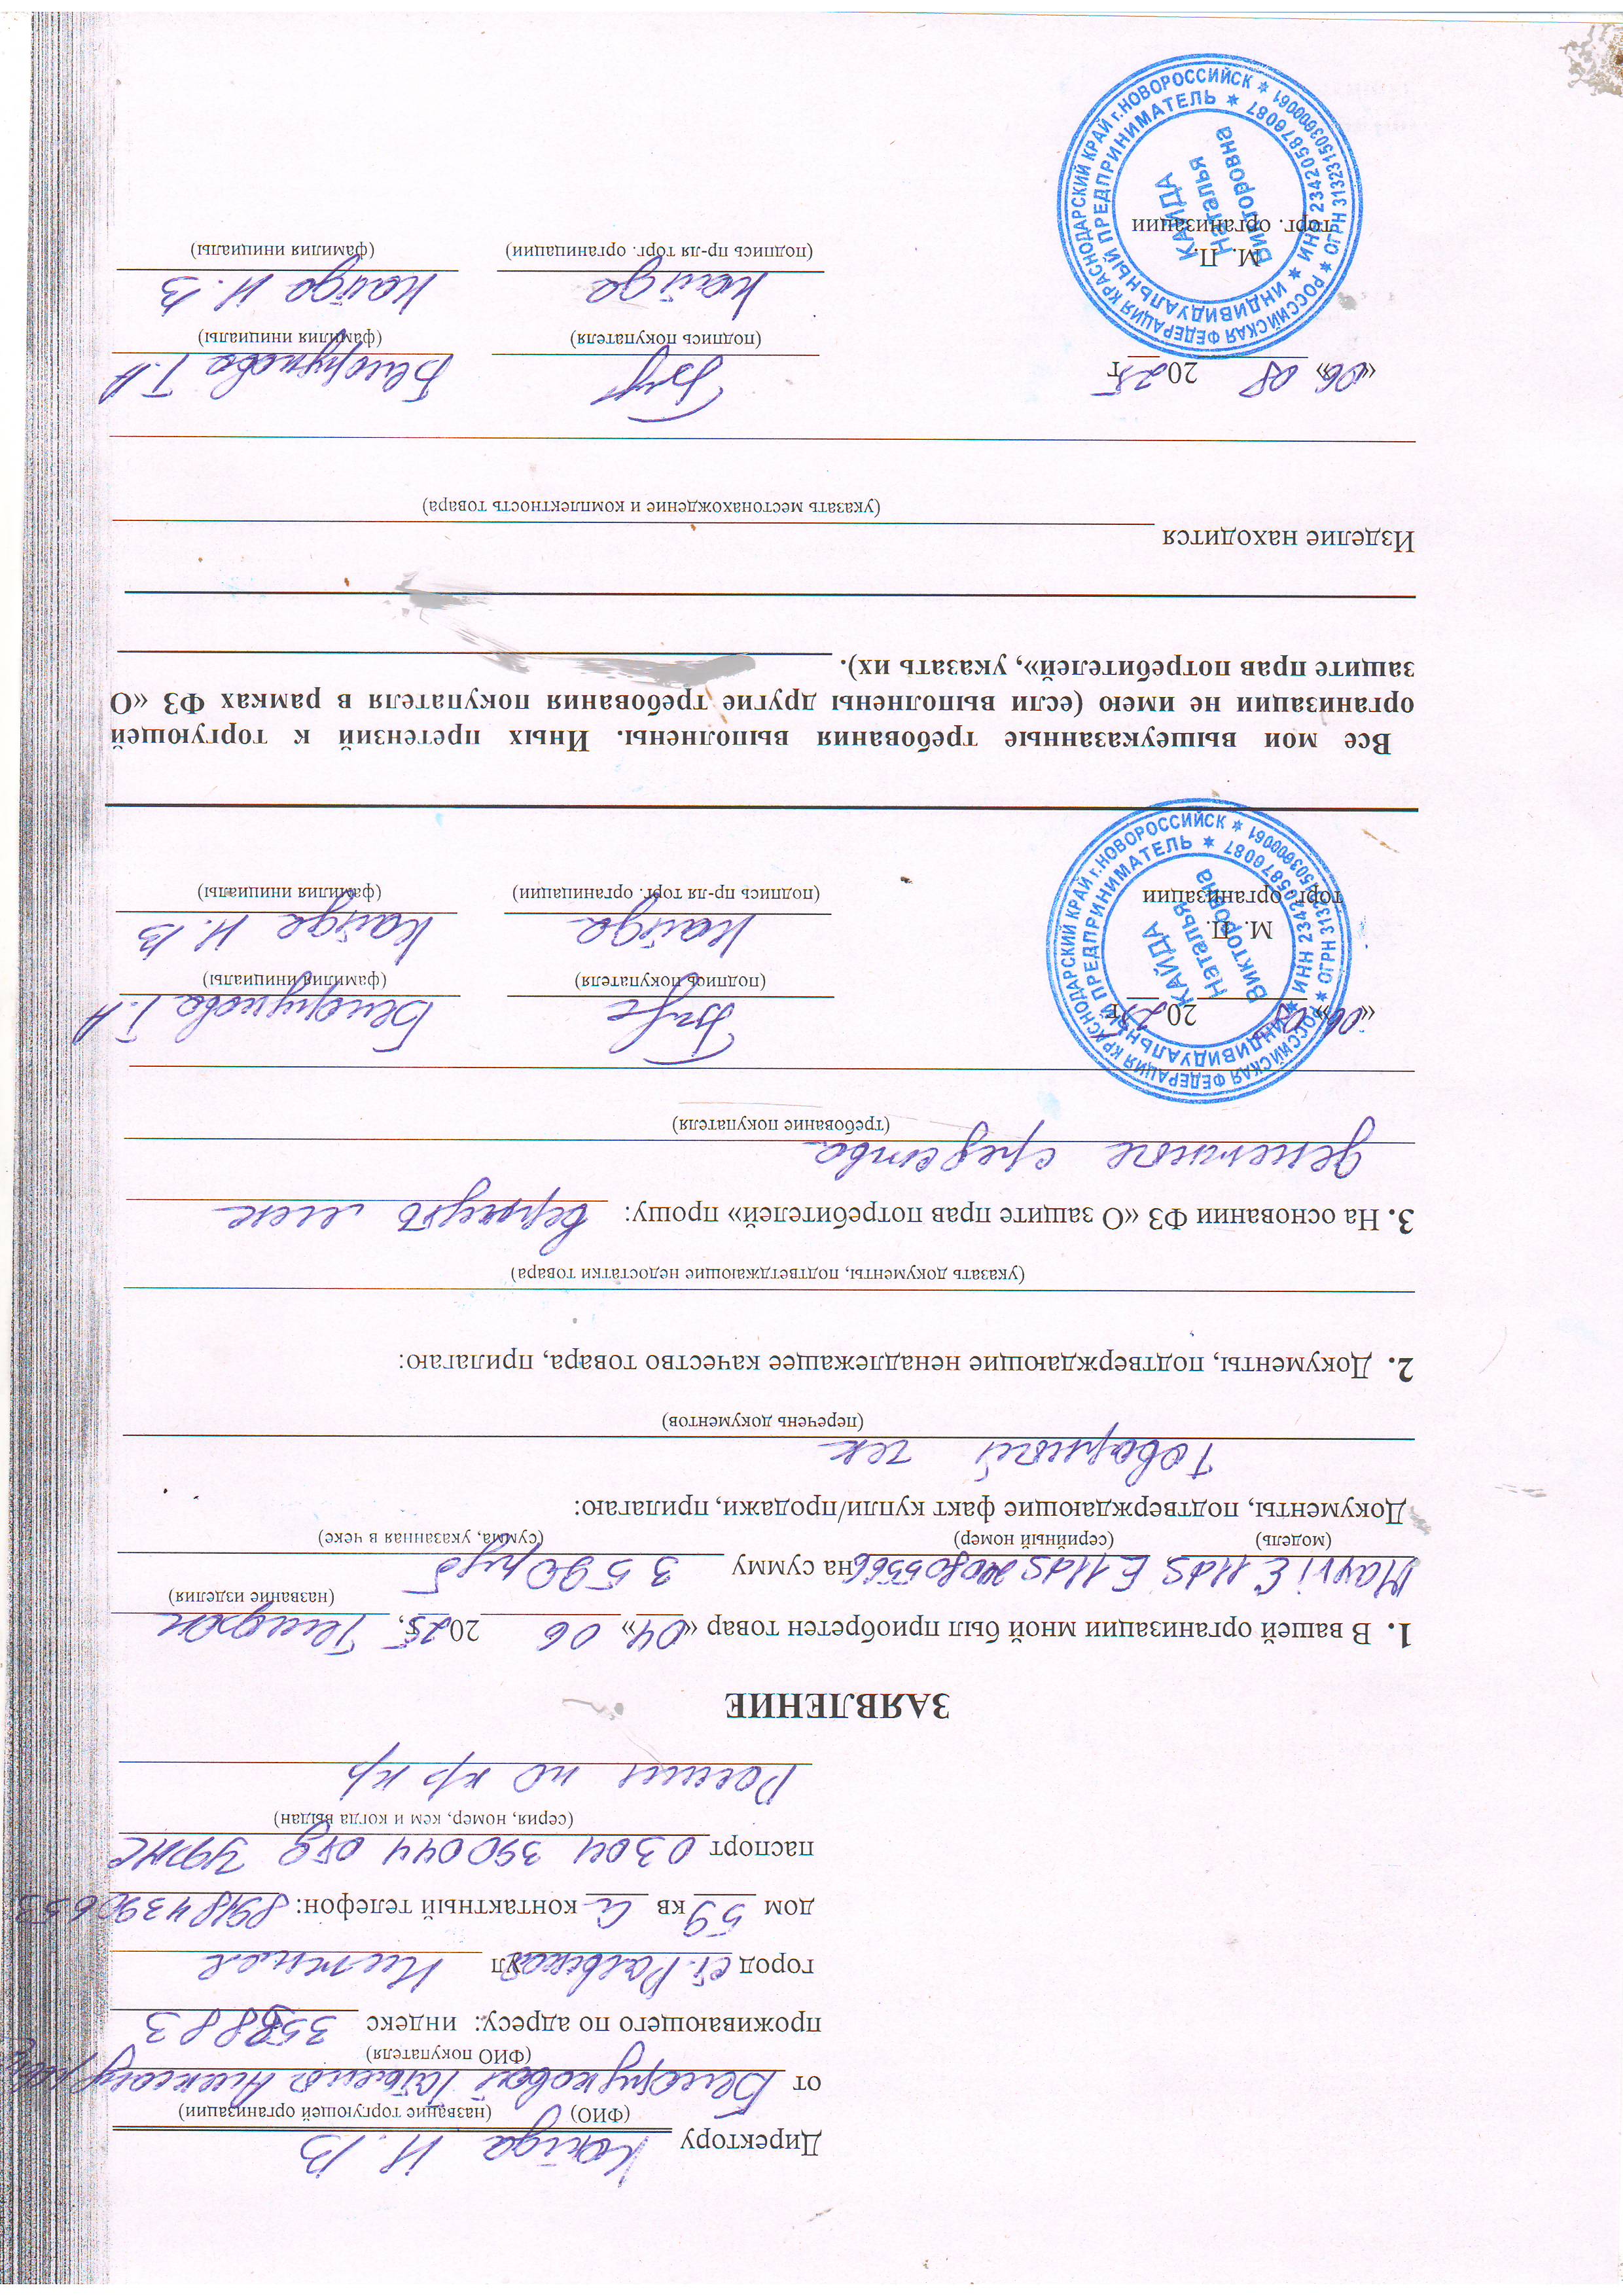 Директору Кайда Н. В
(ФИО) (название торгующей организации)
от Белоруковой Татьяны Александровны
(ФИО покупателя)
проживающего по адресу: индекс 353883
город ст. Раевская ул
дом 59 кв а контактный телефон: 89184390653
паспорт 0304 390044 УФМС
(серия, номер, кем и когда выдан)
России по кр кр
ЗАЯВЛЕНИЕ
1. В вашей организации мной был приобретен товар «04» 06 2025г,
(название изделия)
Mayvi E11dS E11dS на сумму 3 590 руб
(модель) (серийный номер) (сумма, указанная в чеке)
Документы, подтверждающие факт купли/продажи, прилагаю:
Товарный чек
(перечень документов)
2. Документы, подтверждающие ненадлежащее качество товара, прилагаю:
(указать документы, подтветджающие недостатки товара)
3. На основании ФЗ «О защите прав потребителей» прошу: вернуть мне
денежные средства
(требование покупателя)
«06» 08 2025г Белорукова Т. А
(подпись покупателя) (фамилия инициалы)
М. П. Кайда Кайда Н. В
торг. организации (подпись пр-ля торг. органицации) (фамилия инициалы)
РОССИЙСКАЯ ФЕДЕРАЦИЯ КРАСНОДАРСКИЙ КРАЙ г.НОВОРОССИЙСК
ОГРН 313231503600061
ИНДИВИДУАЛЬНЫЙ ПРЕДПРИНИМАТЕЛЬ
ИНН 234205876087
КАЙДА
Наталья
Викторовна
Все мои вышеуказанные требования выполнены. Иных претензий к торгующей
организации не имею (если выполнены другие требования покупателя в рамках ФЗ «О
защите прав потребителей», указать их).
Изделие находится
(указать местонахождение и комплектность товара)
«06» 08 2025г Белорукова Т. А
(подпись покупателя) (фамилия инициалы)
М. П. Кайда Кайда Н. В
торг. организации (подпись пр-ля торг. органицации) (фамилия инициалы)
РОССИЙСКАЯ ФЕДЕРАЦИЯ КРАСНОДАРСКИЙ КРАЙ г.НОВОРОССИЙСК
ОГРН 313231503600061
ИНДИВИДУАЛЬНЫЙ ПРЕДПРИНИМАТЕЛЬ
ИНН 234205876087
КАЙДА
Наталья
Викторовна